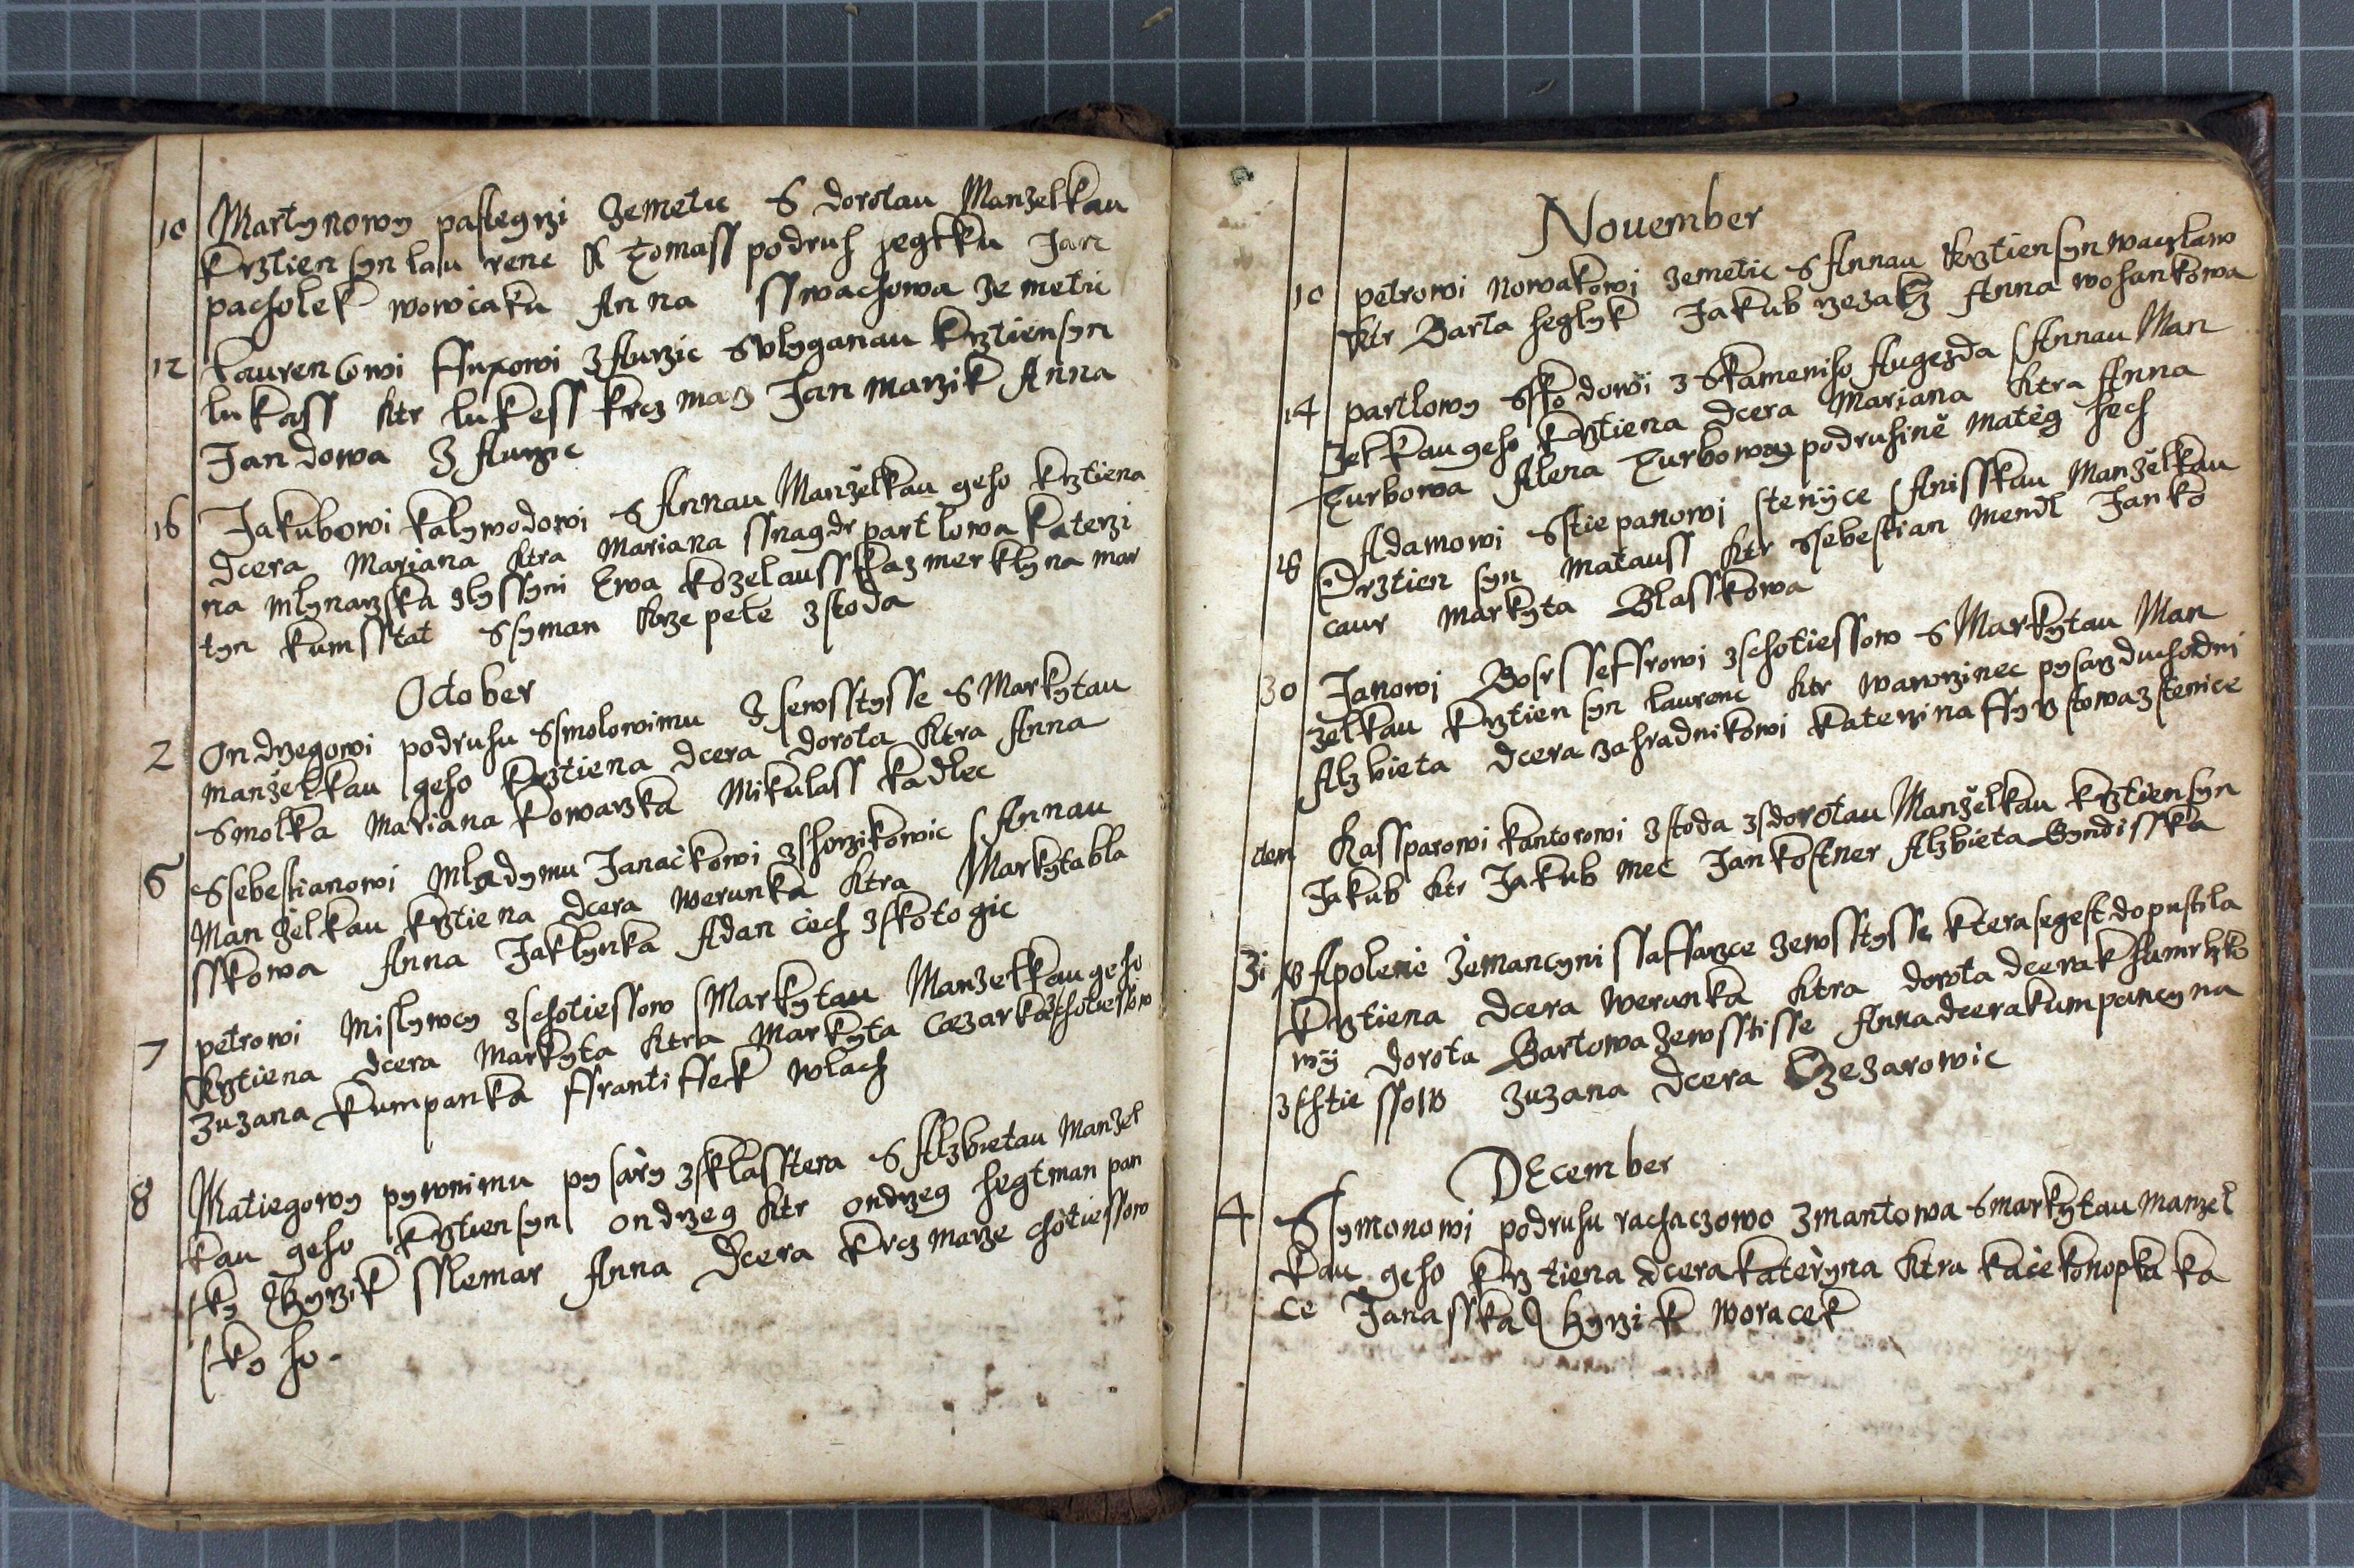 10 Martynowy pastegrzi zemetic S dorotau Manzelkau
krztien syn lau renc K tomass podruh jegtku Jan
pacholek wowcaku Anna sswachowa ze metic
12 Laurencowi ffuxowi z Aurzic S vlyganau krztien syn
lukass ktr lukess krcz marz Jan marzik Anna
Jandowa z Aurzic
16 Jakubowi kalywodowi S Annau Manželkau geho krztiena
dcera Mariana ktra Mariana ssnagdr partlowa katerzi
na mlynarzska zlyssyni Ewa kozelausska z merklyna mar
tyn kumsstat Ssyman krzepete z stoda
October
2 Ondrzegowi podruhu Smolowimu z sewsstysse S Markytau
manželkau geho krztiena dcera dorota ktra Anna
Smolka Mariana kowarzka Mikulass kadlec
6 Ssebestianowi Mladymu Janačkowi z shorzikowic S Annau
Manželkau krztiena dcera werunka ktra Markyta bla
sskowa Anna Jaklynka Adan čech z skotogic
7 petrowi Mislywcy z schotiessow S Markytau Manzelkau geho
krztiena dcera Markyta ktra Markyta Cæzarka z schotiessow
zuzana kumpanka ffrantissek wlach
8 Matiegowy pywnimu pysary z sklasstera S Alzbietau Manzel
kau geho krztien syn ondrzeg ktr ondrzeg hegtman pan
sky Gyrzik sslemar Anna dcera krczmarze chotiessow
skyho.
November
10 petrowi Nowakowi zemetic S Annau krztien syn waczlaw
ktr Barta heglyk Jakub rzezatz Anna wohankowa
14 partlowy Sskodowi z Skameniho Augezda S Annau Man
zelkau geho krztiena dcera Mariana ktra Anna
turbowa Alena turbowa podruhině matěg hech
18 Adamowi Sstiepanowi stenice S Anisskau Manželkau
krztien syn matauss ktr Ssebestian mendl Jan ko
caur Markyta Blasskowa
30 Janowi ssefrowi z schotiessow S Markytau Man
zelkau krztien syn laurenc ktr wawrzinec pysarz duchodni
Alzbieta dcera zahradnikowi katerzina stowa z stenice
den kassparowi kantorowi z stoda z s dorotau Manželkau krztien syn
Jakub ktr Jakub mec Jan kostner Alzbieta Byndisska
31 Apolenie zemancyni ssaffarzce zewsstysse ktera se gest dopustila
krztiena dcera werunka ktra dorota dcera k
wy dorota Bartowa zewsstisse Anna dcera kumpancyna
z shtiessow zuzana dcera Czezarowic
DEcember
4 Ssymonowi podruhu rachaczowo z mantowa S markytau Manzel
kau geho krztiena dcera kateryna ktra kače konopka ka
ce Janasska Gyrzik woracek